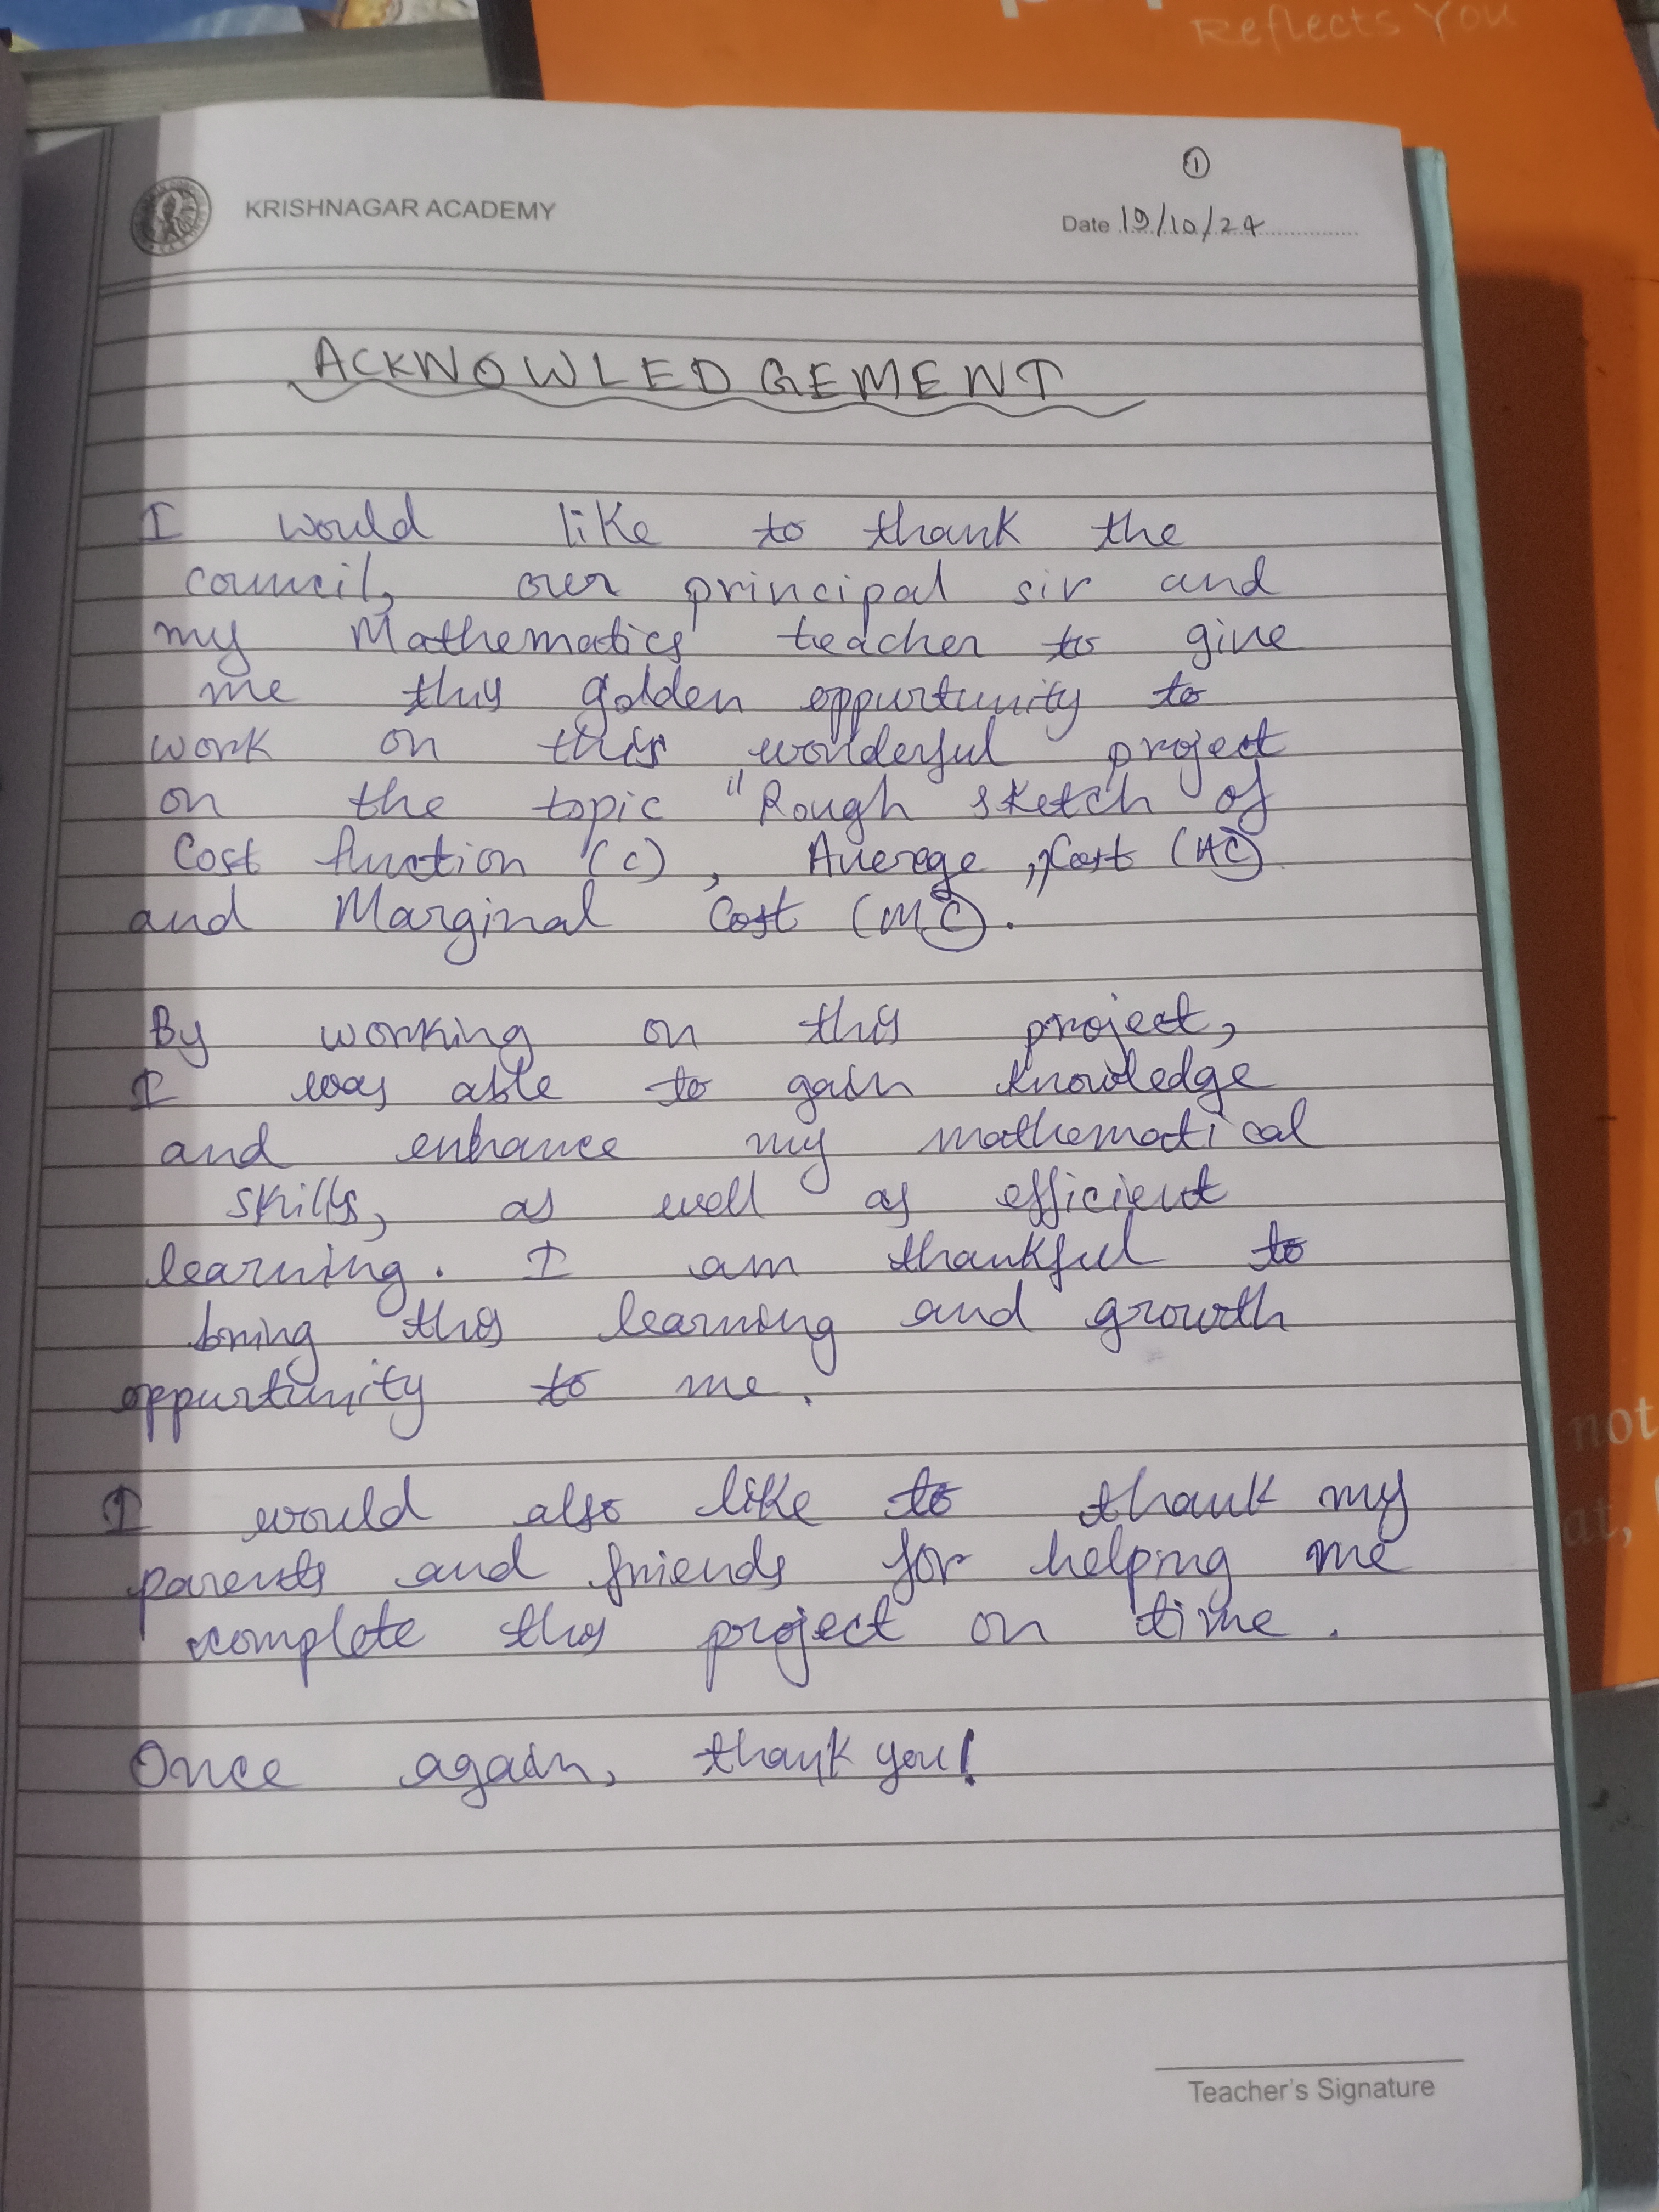 Reflects You
①
KRISHNAGAR ACADEMY
Date 19/10/24
ACKNOWLEDGEMENT
I would like to thank the
council, our principal sir and
my Mathematics teacher to give
me this golden oppurtunity to
work on this wonderful project
on the topic "Rough sketch of
Cost function (C), Average Cost (AC)
and Marginal Cost (MC).
By working on this project,
I was able to gain knowledge
and enhance my mathematical
skills, as well as efficient
learning. I am thankful to
bring this learning and growth
oppurtunity to me.
I would also like to thank my
parents and friends for helping me
complete this project on time.
Once again, thank you!
not
at,
Teacher's Signature